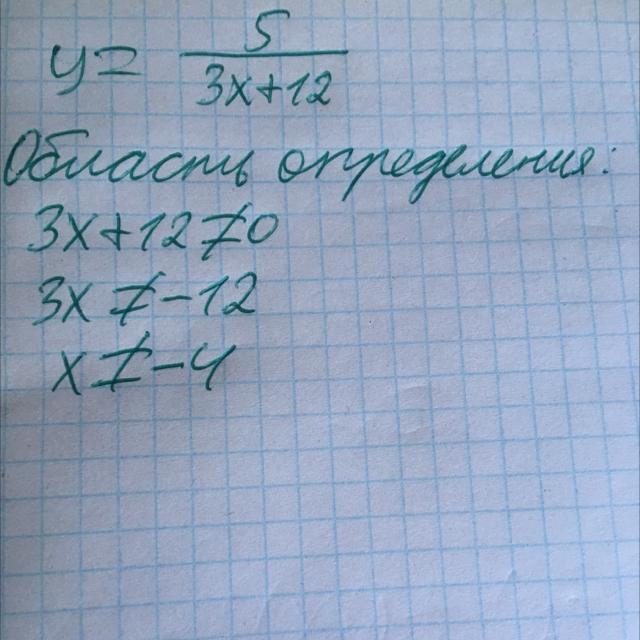 y = 5/(3x+12)
Область определения:
3x+12≠0
3x≠-12
x≠-4